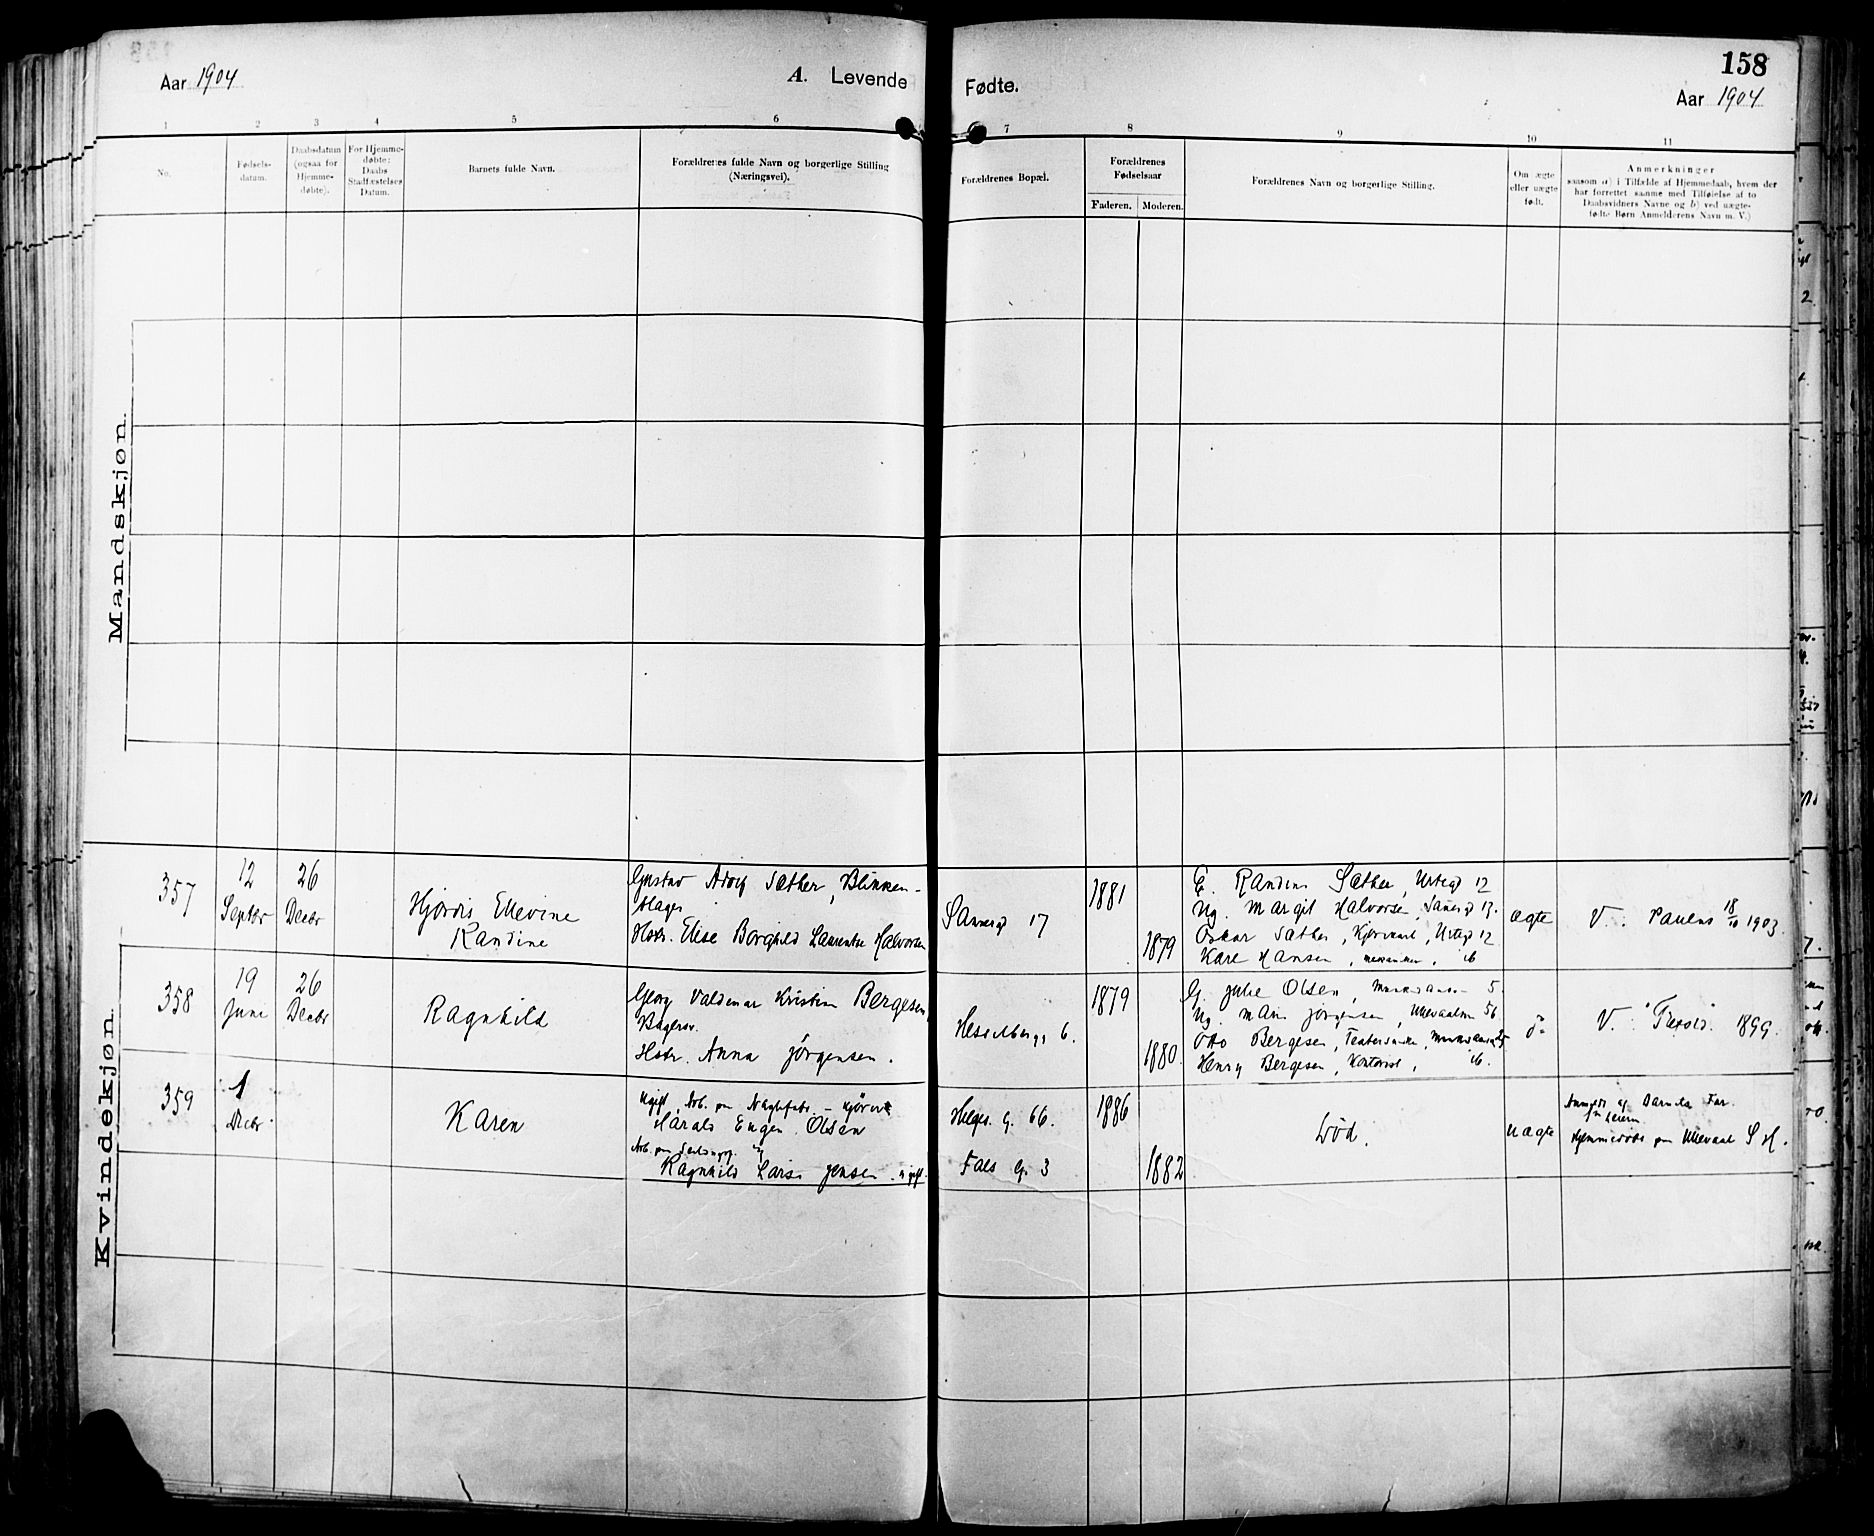 158
Aar 1904
A. Levende Fødte.
Aar 1904
1 2 3 4 5 6 7 8 9 10 11
No.
Fødsels-
datum.
Daabsdatum
(ogsaa for
Hjemme-
døbte).
For Hjemme-
døbte:
Daabs
Stadfæstelses
Datum.
Barnets fulde Navn.
Forældrenes fulde Navn og borgerlige Stilling
(Næringsvei).
Forældrenes Bopæl.
Forældrenes
Fødselsaar
Faderen. Moderen.
Forældrenes Navn og borgerlige Stilling.
Om ægte
eller uægte
født.
Anmerkninger
saasom a) i Tilfælde af Hjemmedaab, hvem der
har forrettet samme med Tilføielse af to
Daabsvidners Navne og b) ved uægte-
fødte Børn Anmelderens Navn m. V.)
Mandskjøn.
Kvindekjøn.
357
12
Septbr
26
Decbr
Hjørdis Ellevine
Randine
Gustav Adolf Sæther, Blikken-
slager
Hstr. Elise Borghild Laurentse Halvorsen
Sannergd 17
1881
1879
E. Randine Sæther, Urtegd 12
Ug. Margit Halvorsen, Sannergd 17.
Oskar Sæther, Urtegd 12
Karl Hansen, ib
ægte
V. Paulus 18/10 1903.
358
19
Juni
26
Decbr
Ragnhild
Georg Valdemar Kristian Bergesen,
Bagersv.
Hstr. Anna Jørgensen.
Hesselbergs 6.
1879
1880.
G. Julie Olsen, 5.
Ug. Marie Jørgensen, Ullevaalsvn 56
Otto Bergesen,
Henry Bergesen, Kontorist, ib.
V. 1899.
359
1
Decbr
Karen
Ugift, Arb. paa
Harald Eugen Olsen
Arb. paa og
Ragnhild Larsa Jensen. ugift.
Helges. G. 66.
Fals G. 3
1886
1882
Død.
uægte
Anmeldt af Barnets Far
Hjemmedøbt paa Ullevaal S H.